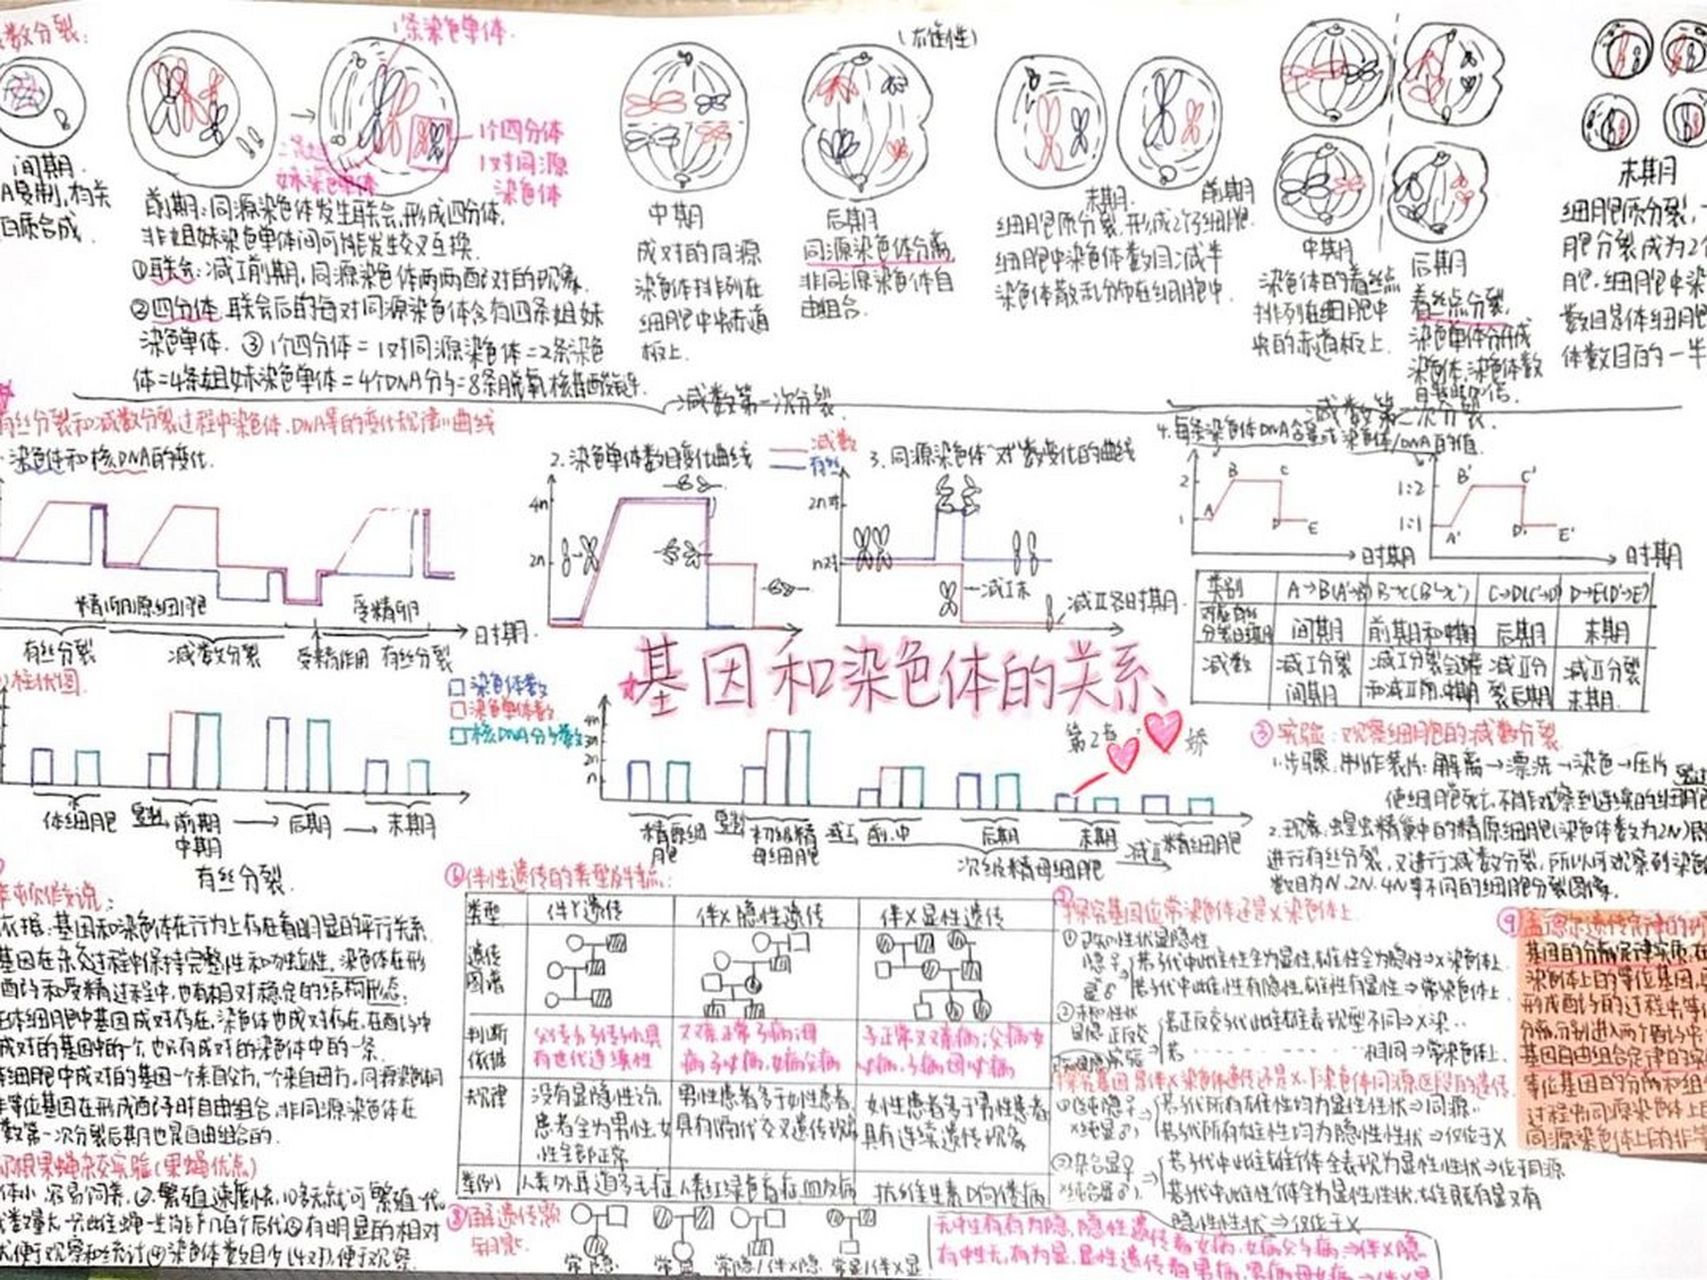 数分裂:
1条染色单体
(雄性)
1个四分体
1对同源
染色体
姐妹染色单体
间期
A复制,相关
白质合成.
前期:同源染色体发生联会,形成四分体.
非姐妹染色单体间可能发生交叉互换.
①联会:减Ⅰ前期,同源染色体两两配对的现象.
②四分体.联会后的每对同源染色体含有四条姐妹
染色单体. ③1个四分体=1对同源染色体=2条染色
体=4条姐妹染色单体=4个DNA分子=8条脱氧核苷酸链.
中期
成对的同源
染色体排列在
细胞中央赤道
板上.
后期
同源染色体分离,
非同源染色体自
由组合.
末期 前期
细胞质分裂,形成2个子细胞.
细胞中染色体数目减半
染色体散乱分布在细胞中.
中期
染色体的着丝点
排列在细胞中
央的赤道板上.
后期
着丝点分裂,
染色单体分开成
染色体,染色体数
目加倍.
末期
细胞质分裂,
胞分裂成为2
胞.细胞中染
数目是体细胞
体数目的一半
减数第一次分裂.
减数第二次分裂.
有丝分裂和减数分裂过程中染色体、DNA等的变化规律曲线
染色体和核DNA的变化.
精(卵)原细胞
受精卵
时期
有丝分裂 减数分裂 受精作用 有丝分裂
2.染色单体数目变化曲线
减数
有丝
4n
2n
3.同源染色体"对"数变化的曲线
2n对
n对
减Ⅰ末
减Ⅱ各时期.
4.每条染色体DNA含量或染色体/DNA的值
2 B C
1 A D E
时期
1:2 B' C'
1:1 A' D' E'
时期
类别 A→B(A'→B') B→C(B'→C') C→D(C'→D') D→E(D'→E')
对应有丝分裂时期 间期 前期和中期 后期 末期
减数 减Ⅰ分裂间期 减Ⅰ分裂全过程和减Ⅱ前、中期 减Ⅱ分裂后期 减Ⅱ分裂末期.
基因和染色体的关系
第2章
娇
柱状图
染色体数
染色单体数
核DNA分子数
体细胞 复制 前期中期 → 后期 → 末期
有丝分裂.
4n
3n
2n
n
精原细胞 复制 初级精母细胞 减Ⅰ 前、中 后期 末期 减Ⅱ 精细胞
次级精母细胞
③实验:观察细胞的减数分裂
1.步骤.制作装片:解离→漂洗→染色→压片
使细胞死亡,不能观察到连续的细胞
2.现象:蝗虫精巢中的精原细胞(染色体数为2N)既
进行有丝分裂,又进行减数分裂,所以可观察到染色
数目为N、2N、4N等不同的细胞分裂图像.
依据:基因和染色体在行为上存在着明显的平行关系
基因在杂交过程中保持完整性和独立性.染色体在形
配子和受精过程中,也有相对稳定的结构形态;
在体细胞中基因成对存在,染色体也成对存在,在配子中
成对的基因中的一个,也只有成对的染色体中的一条.
细胞中成对的基因一个来自父方,一个来自母方,同源染色体
等位基因在形成配子时自由组合,非同源染色体在
数第一次分裂后期也是自由组合的.
根果蝇杂交实验(果蝇优点)
体小,容易饲养.②繁殖速度快,10多天就可繁殖一代
一只雌蝇一生能产几百个后代④有明显的相对
便于观察和统计④染色体数目少(4对),便于观察.
⑥伴性遗传的类型及特点:
类型 伴Y遗传 伴X隐性遗传 伴X显性遗传
遗传图谱
判断依据 父传子,子传孙,具有世代连续性 父亲正常子病;母病子必病,女病父病 子正常父双病;父病女必病,子病母必病
规律 没有显隐性之分,患者全为男性,女性全部正常 男性患者多于女性患者,具有隔代交叉遗传现象 女性患者多于男性患者具有连续遗传现象
举例 人类外耳道多毛症 人类红绿色盲症、血友病 抗维生素D佝偻病
探究基因位常染色体还是X染色体上.
①已知性状显隐性
若子代中雌性全为显性,雄性全为隐性⇒X染色体上.
若子代中雌性有隐性,雄性有显性⇒常染色体上.
②未知性状
若正反交子代雌雄表现型不同⇒X染..
若 . . . . . . 相同⇒常染色体上.
探究基因是伴X染色体遗传还是X、Y染色体同源区段的遗传.
若子代所有雄性均为显性性状⇒同源..
若子代所有雄性均为隐性性状⇒仅位于X
②杂合显♀
若子代中雌雄个体全表现为显性性状⇒位于同源
若子代中雌性个体全为显性性状,雄性既有显又有
隐性性状⇒仅位于X
⑨孟德尔遗传定律的
基因的分离定律实质:在
染色体上的等位基因,
形成配子的过程中,等位
分离,分别进入两个配子中
基因自由组合定律的实
等位基因的分离和组
过程中,同源染色体上
同源染色体上的非等
常隐 常显 常隐/伴X隐 常显/伴X显
无中生有有为隐,隐性遗传看女病,女病父子病⇒伴X隐
有中生无,有为显.显性遗传看男病,男病母女病⇒伴X显